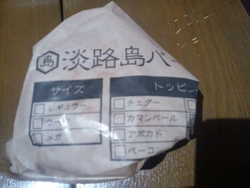 島 淡路島バー
サイズ
トッピン
レギュラー
チェダー
カマンベール
メガ
アボカド
ベーコン